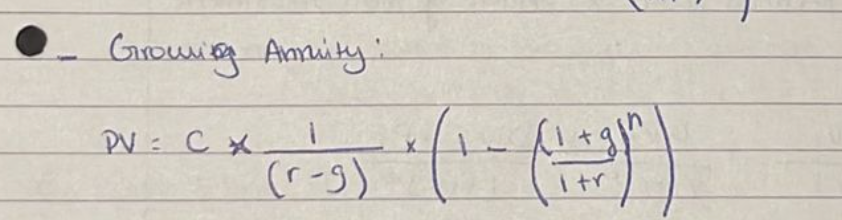 - Growing Annuity:
PV = C × 1/(r-g) × (1 - ((1+g)/(1+r))^n)